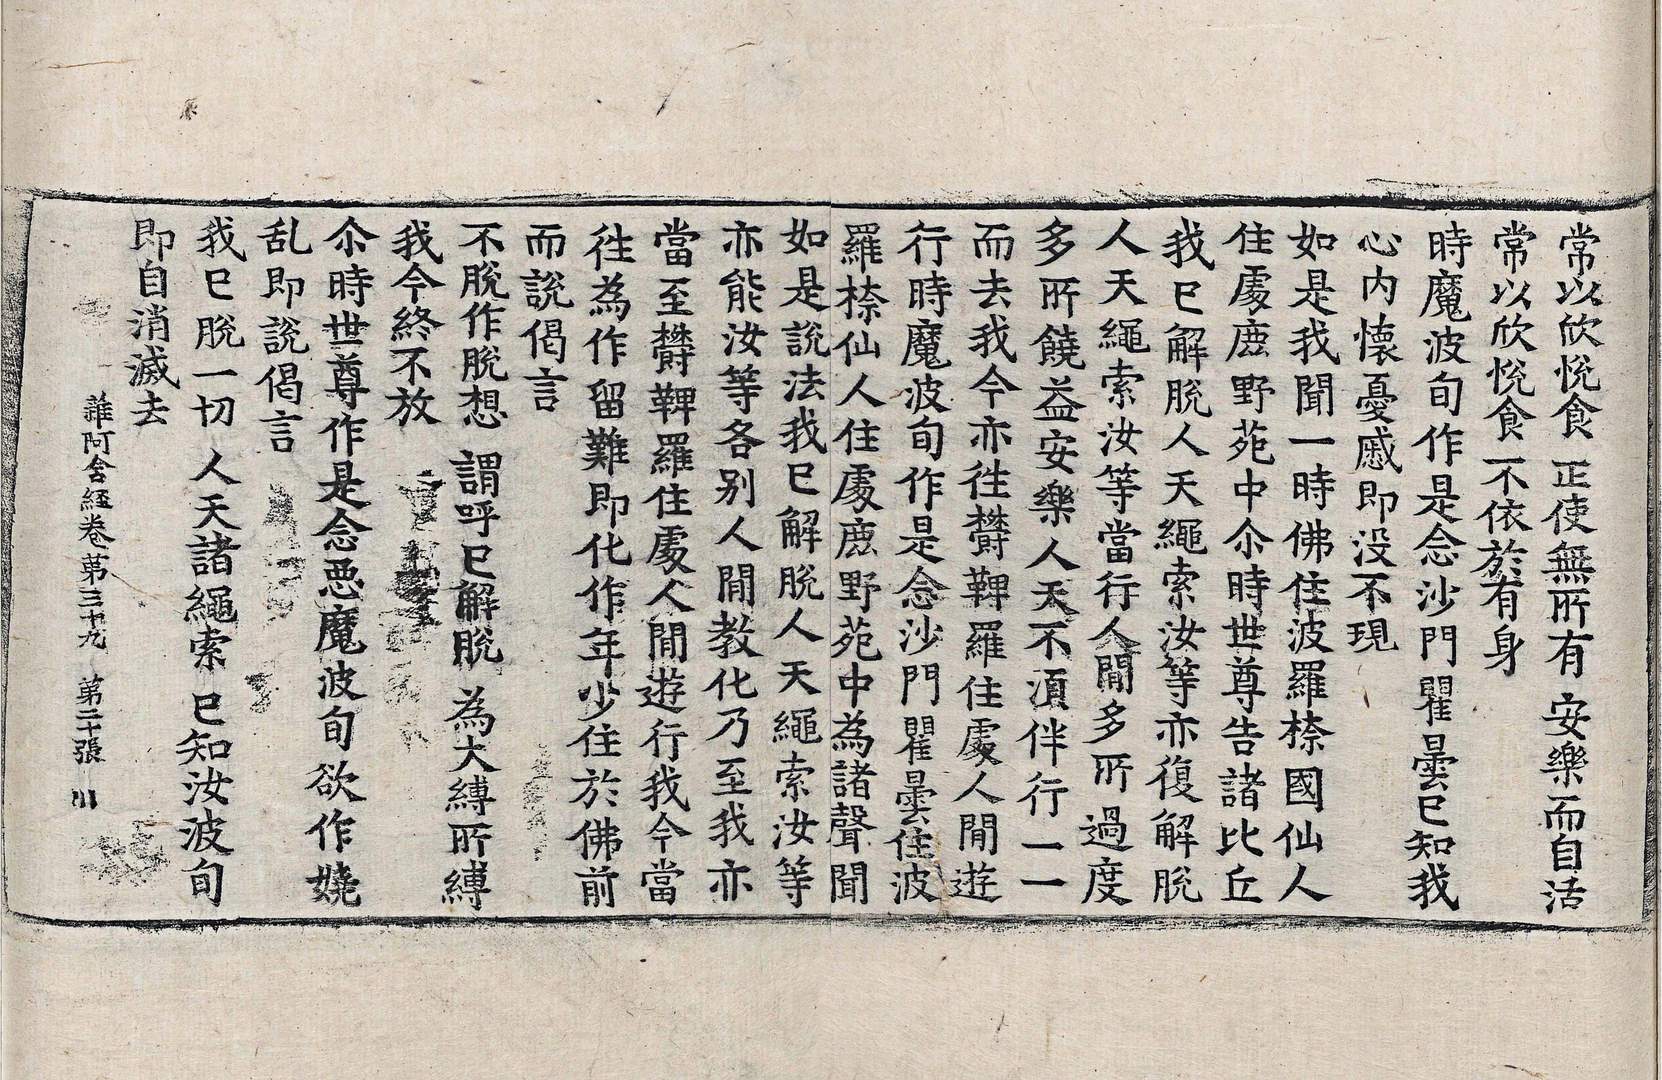 常以欣悅食　正使無所有　安樂而自活
常以欣悅食　不依於有身
時魔波旬作是念沙門瞿曇已知我
心內懷憂慼即没不現
如是我聞一時佛住波羅㮈國仙人
住處鹿野苑中尒時世尊告諸比丘
我已解脫人天繩索汝等亦復解脫
人天繩索汝等當行人間多所過度
多所饒益安樂人天不湏伴行一一
而去我今亦往欝鞞羅住處人間遊
行時魔波旬作是念沙門瞿曇住波
羅㮈仙人住處鹿野苑中為諸聲聞
如是說法我已解脫人天繩索汝等
亦能汝等各别人間教化乃至我亦
當至欝鞞羅住處人間遊行我今當
往為作留難即化作年少住於佛前
而說偈言
不脫作脫想　謂呼已解脫　為大縛所縛
我今終不放
尒時世尊作是念惡魔波旬欲作嬈
乱即說偈言
我已脫一切　人天諸繩索　已知汝波旬
即自消滅去
雜阿含經卷第三十九　第二十張